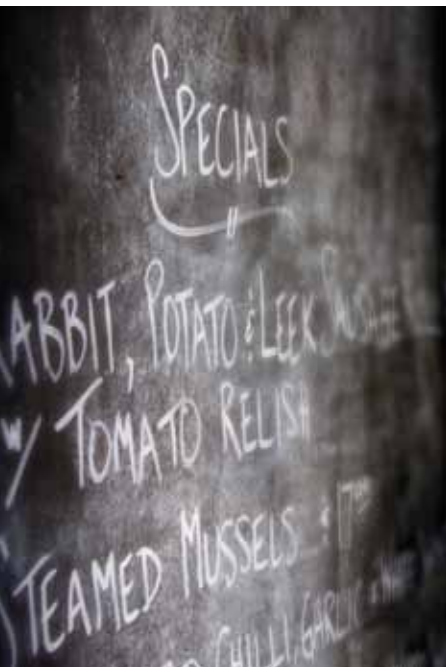 SPECIALS
RABBIT, POTATO & LEEK SAUSAGE
W/ TOMATO RELISH
STEAMED MUSSELS $17
CHILLI, GARLIC